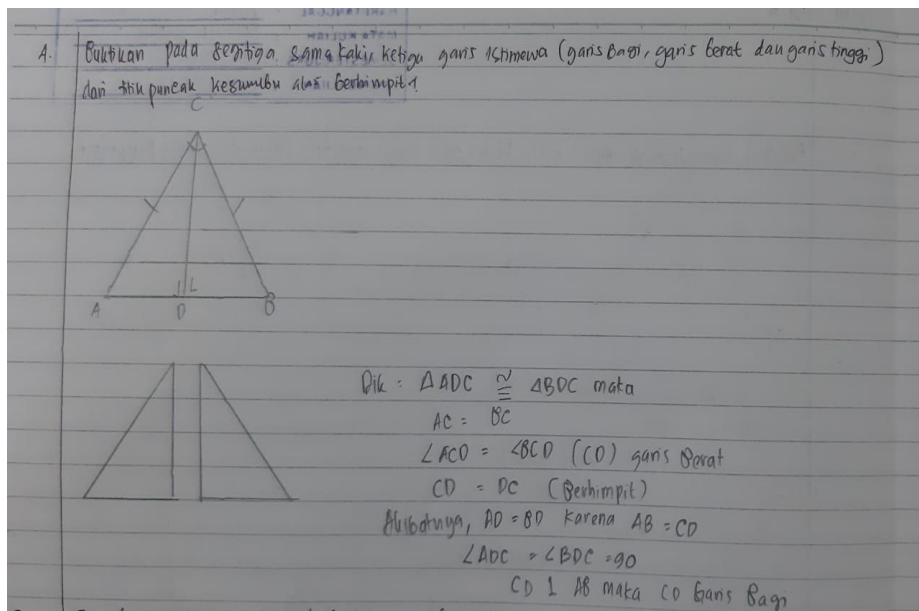 A. Buktikan pada segitiga sama kakis ketiga garis istimewa (garis bagi, garis berat dan garis tinggi)
dari titik puncak kesumbu alas berhimpit?
C
A D B
Dik : △ADC ≅ △BDC maka
AC = BC
∠ACD = ∠BCD (CD) garis Berat
CD = DC (Berhimpit)
Akibatnya, AD = BD karena AB = CD
∠ADC = ∠BDC = 90
CD ⊥ AB maka CD Garis Bagi